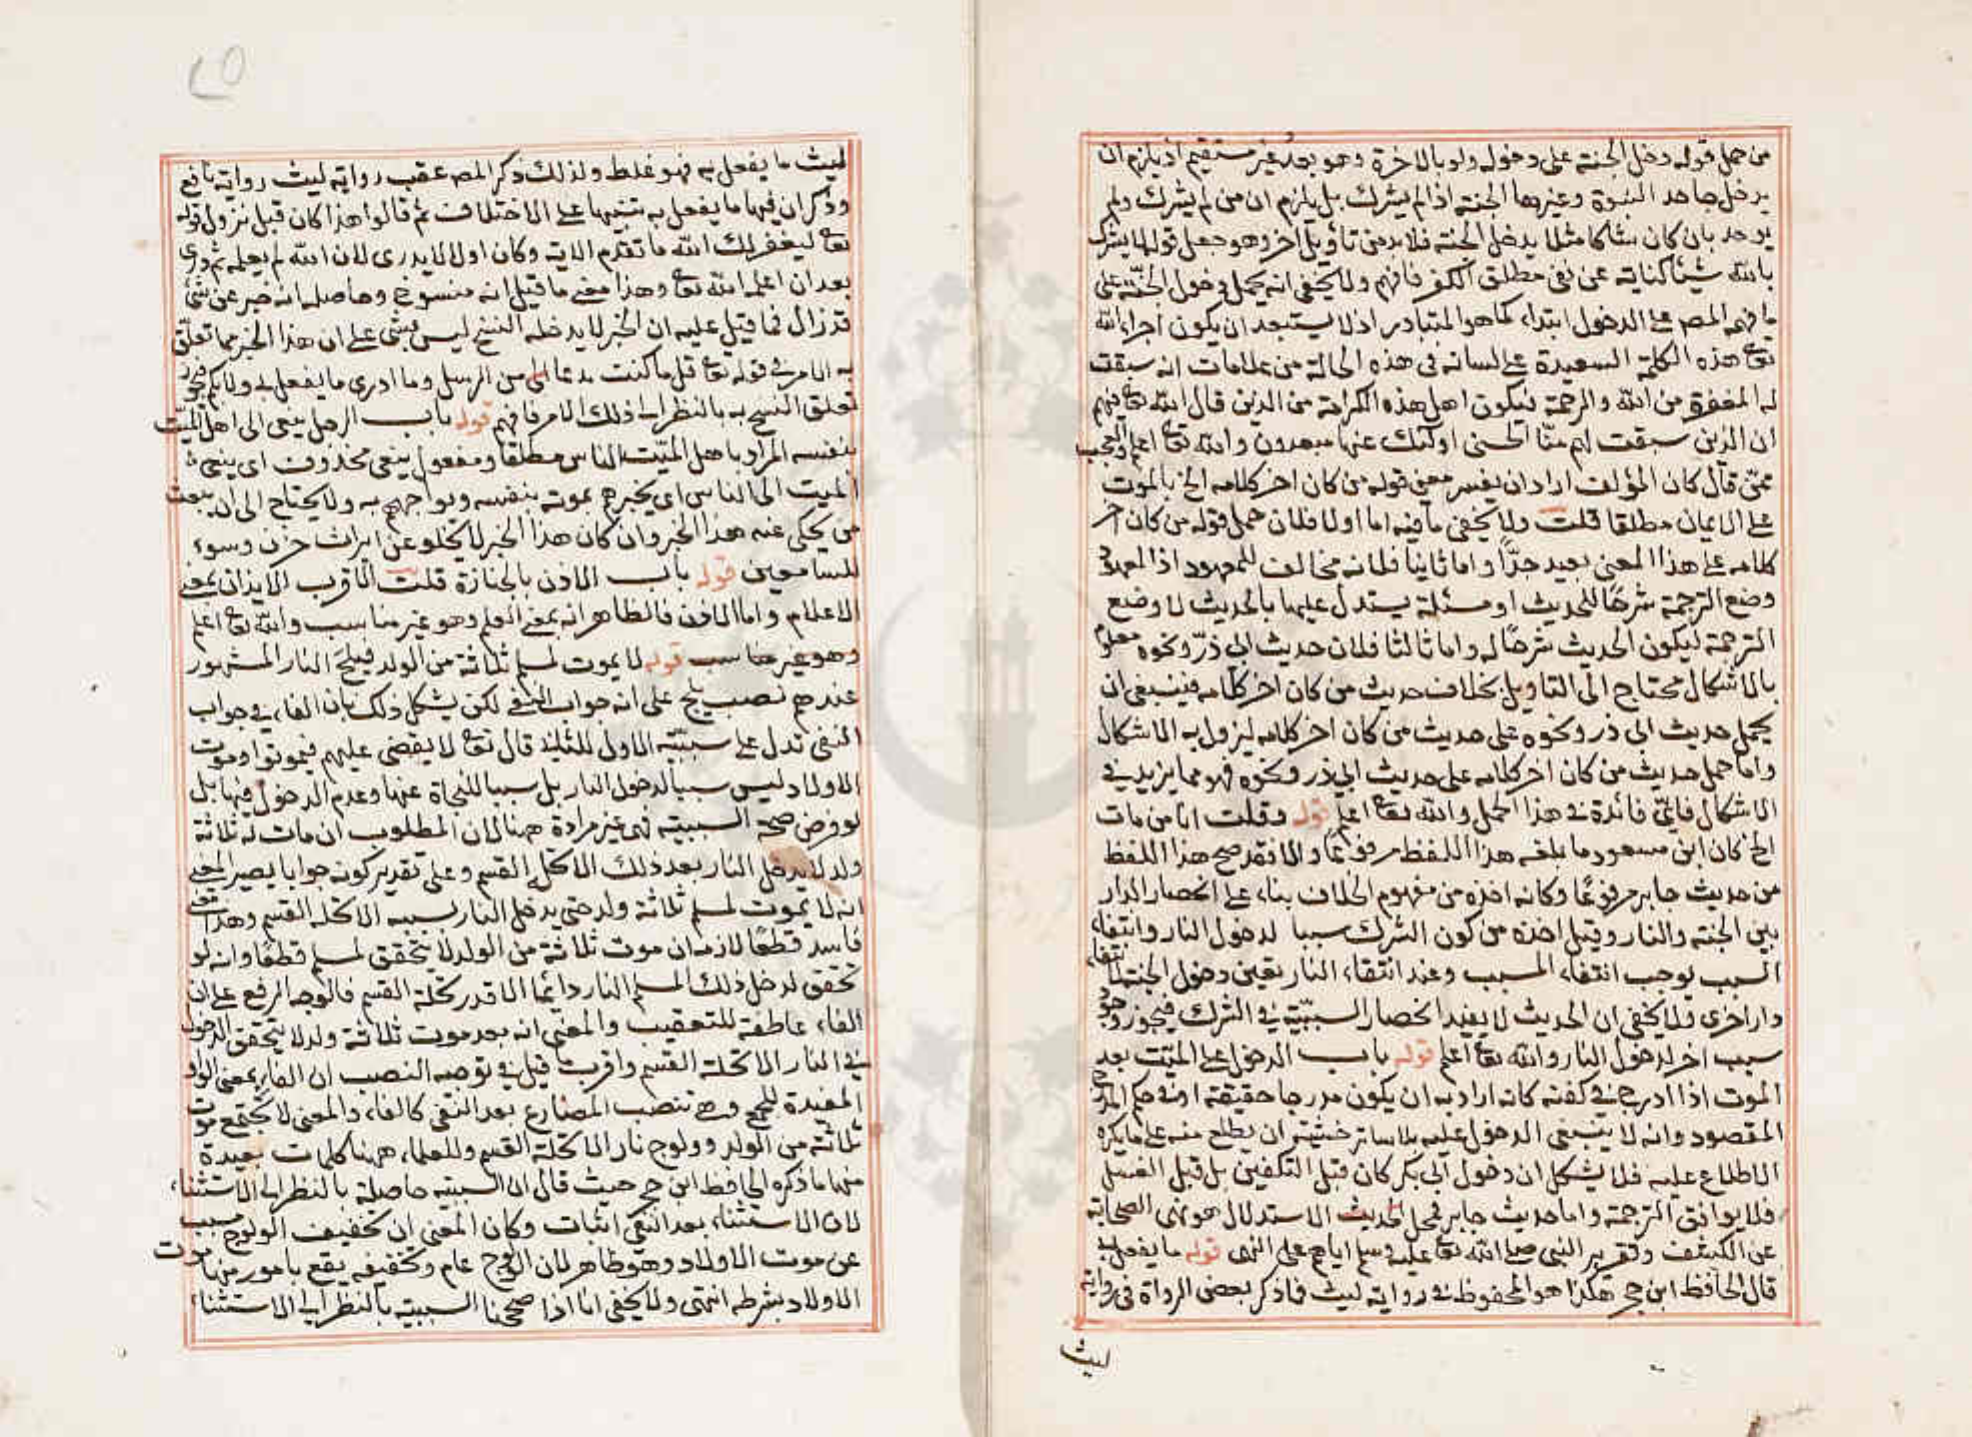 من حمل قوله دخل الجنة على دخوله ولو بالاخرة وهو بعد غير مستقيم اذ يلزم ان
يدخل جاحد النبوة وغيرها الجنة اذا لم يشرك بل يلزم ان من لم يشرك ولم
يوحد بان كان شاكا مثلا يدخل الجنة فلا بد من تأويل اخر وهو جعل قوله لا يشرك
بالله شيئا كناية عن نفى مطلق الكفر فافهم ولا يخفى انه يحمل دخول الجنة على
ما فهمه المص على الدخول ابتداء كما هو المتبادر اذ لا يستبعد ان يكون اجراء الله
تعا هذه الكلمة السعيدة على لسانه فى هذه الحالة من علامات انه سبقت
له المغفرة من الله والرحمة فيكون اهل هذه الكرامة من الذين قال الله تعا فيهم
ان الذين سبقت لهم منّا الحسنى اولئك عنها مبعدون والله تعا اعلم والعجب
ممّن قال كان المؤلف اراد ان يفسر معنى قوله من كان اخر كلامه الخ بالموت
على الايمان مطلقا قلت ولا يخفى ما فيه اما اولا فلان حمل قوله من كان اخر
كلامه على هذا المعنى بعيد جدّا واما ثانيا فلانه مخالف للمعهود اذ المعهود
وضع الترجمة شرحًا للحديث او مسئلة يستدل عليها بالحديث لا وضع
الترجمة ليكون الحديث شرحًا له واما ثالثا فلان حديث ابى ذرّ ونحوه معلوم
بالاشكال محتاج الى التاويل بخلاف حديث من كان اخر كلامه فينبغى ان
يحمل حديث ابى ذر ونحوه على حديث من كان اخر كلامه ليزول به الاشكال
واما حمل حديث من كان اخر كلامه على حديث ابى ذر ونحوه فهو مما يزيد فى
الاشكال فاىّ فائدة فى هذا الحمل والله تعا اعلم قوله وقلت انا من مات
الخ كان ابن مسعود ما بلغه هذا اللفظ مرفوعًا والا فقد صح هذا اللفظ
من حديث جابر مرفوعًا وكانه اخذه من مفهوم الخلاف بناء على انحصار الدار
بين الجنة والنار وقيل اخذه من كون الشرك سببا لدخول النار وانتفاء
السبب يوجب انتفاء المسبب وعند انتفاء النار يتعين دخول الجنة لانتفاء
دار اخرى ولا يخفى ان الحديث لا يفيد انحصار السببيّة فى الشرك فيجوز وجود
سبب اخر لدخول النار والله تعا اعلم قوله باب الدخول على الميّت بعد
الموت اذا ادرج فى كفنه كانه اراد به ان يكون مدرجا حقيقة او فى حكم المدرج
المقصود وانه لا ينبغى الدخول عليه بلا ساتر خشية ان يطلع منه على ما يكره
الاطلاع عليه فلا يشكل ان دخول ابى بكر كان قبل التكفين بل قبل الغسل
فلا يوافق الترجمة واما حديث جابر فمحل الحديث الاستدلال هو نهى الصحابة
عن الكشف وتقرير النبى صلى الله تعا عليه وسلم اياهم على النهى قوله ما يفعل به
قال الحافظ ابن حجر هكذا هو المحفوظ فى رواية ليث فما ذكر بعض الرواة فى رواية
ليث
ليث ما يفعل به فهو غلط ولذلك ذكر المص عقب رواية ليث رواية نافع
وذكر ان فيها ما يفعل به تنبيها على الاختلاف ثم قالوا هذا كان قبل نزول قوله
تعا ليغفر لك الله ما تقدم الاية وكان اولا لا يدرى لان الله لم يعلمه ثم درى
بعد ان اعلمه الله تعا وهذا معنى ما قيل انه منسوخ وحاصله انه خبر عن شئ
قد زال فما قيل عليه ان الخبر لا يدخله النسخ ليس بشئ على ان هذا الخبر مما تعلّق
به الامر فى قوله تعا قل ما كنت بدعا من الرسل وما ادرى ما يفعل بى ولا بكم فيجوز
تعلق النسخ به بالنظر الى ذلك الامر فافهم قوله باب الرجل ينعى الى اهل الميّت
بنفسه المراد باهل الميّت الناس مطلقا ومفعول ينعى محذوف اى ينعى
الميت الى الناس اى يخبرهم بموته بنفسه ويواجههم به ولا يحتاج الى ان يبعث
من يحكى عنه هذا الخبر وان كان هذا الخبر لا يخلو عن ايراث حزن وسوء
للسامعين قوله باب الاذن بالجنازة قلت الاقرب الايذان بمعنى
الاعلام واما الاذن فالظاهر انه بمعنى العلم وهو غير مناسب والله تعا اعلم
وهو غير مناسب قوله لا يموت لمسلم ثلاثة من الولد فيلج النار المشهور
عندهم نصب يلج على انه جواب النفى لكن يشكل ذلك بان الفاء فى جواب
النفى تدل على سببيّة الاول للثانى قال تعا لا يقضى عليهم فيموتوا وموت
الاولاد ليس سببا لدخول النار بل سببا للنجاة عنها وعدم الدخول فيها بل
لو فرض صحة السببية فهى غير مرادة ههنا لان المطلوب ان مات له ثلاثة
ولد لا يدخل النار بعد ذلك الا تحلة القسم وعلى تقدير كونه جوابا يصير المعنى
انه لا يموت لمسلم ثلاثة ولد حتى يدخل النار بسببه الا تحلة القسم وهذا معنى
فاسد قطعًا لازمه ان موت ثلاثة من الولد لا يتحقق لمسلم قطعًا وانه لو
تحقق لدخل ذلك المسلم النار دائما الا قدر تحلة القسم فالوجه الرفع على ان
الفاء عاطفة للتعقيب والمعنى انه بعد موت ثلاثة ولد لا يتحقق الدخول
فى النار الا تحلة القسم واقرب ما قيل فى توجيه النصب ان الفاء بمعنى الواو
المفيدة للجمع وهى تنصب المضارع بعد النفى كالفاء والمعنى لا تجتمع موت
ثلاثة من الولد وولوج نار الا تحلة القسم وللعلماء ههنا كلمات بعيدة
منها ما ذكره الحافظ ابن حجر حيث قال ان السببية حاصلة بالنظر الى الاستثناء،
لان الاستثناء بعد النفى اثبات وكان المعنى ان تخفيف الولوج مسبب
عن موت الاولاد وهو ظاهر لان الولوج عام وتخفيفه يقع بامور منها موت
الاولاد بشرطه انتهى ولا يخفى انا اذا صححنا السببية بالنظر الى الاستثناء،